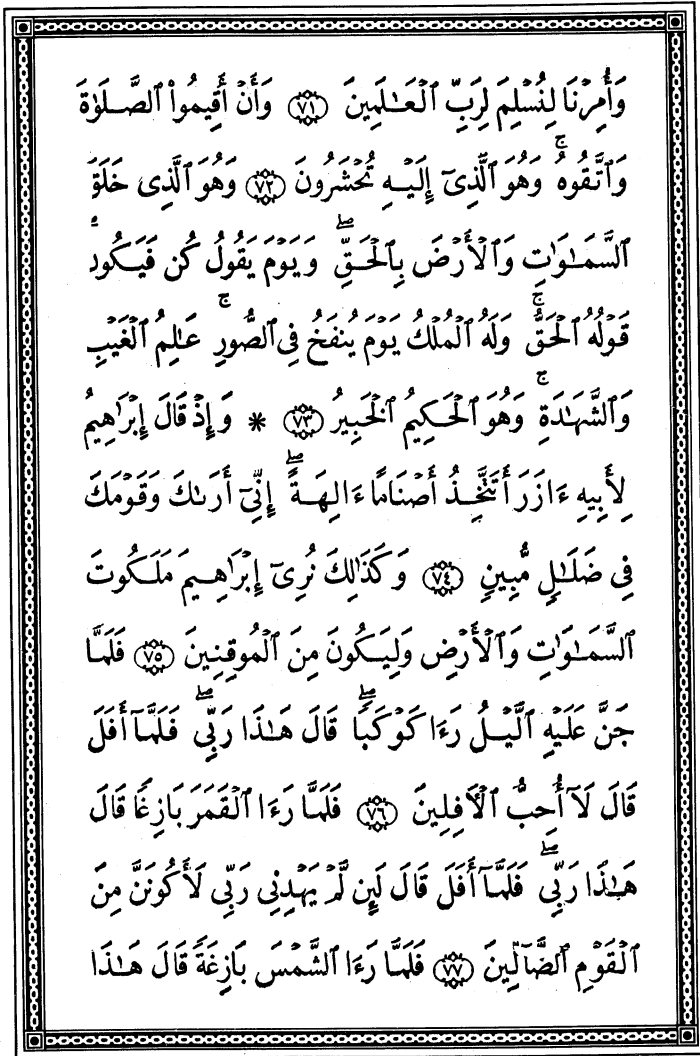 وَأُمِرْنَا لِنُسْلِمَ لِرَبِّ ٱلْعَـٰلَمِينَ ﴿٧١﴾ وَأَنْ أَقِيمُوا۟ ٱلصَّلَوٰةَ
وَٱتَّقُوهُ ۚ وَهُوَ ٱلَّذِىٓ إِلَيْهِ تُحْشَرُونَ ﴿٧٢﴾ وَهُوَ ٱلَّذِى خَلَقَ
ٱلسَّمَـٰوَٰتِ وَٱلْأَرْضَ بِٱلْحَقِّ ۖ وَيَوْمَ يَقُولُ كُن فَيَكُونُ ۚ
قَوْلُهُ ٱلْحَقُّ ۚ وَلَهُ ٱلْمُلْكُ يَوْمَ يُنفَخُ فِى ٱلصُّورِ ۚ عَـٰلِمُ ٱلْغَيْبِ
وَٱلشَّهَـٰدَةِ ۚ وَهُوَ ٱلْحَكِيمُ ٱلْخَبِيرُ ﴿٧٣﴾ * وَإِذْ قَالَ إِبْرَٰهِيمُ
لِأَبِيهِ ءَازَرَ أَتَتَّخِذُ أَصْنَامًا ءَالِهَةً ۖ إِنِّىٓ أَرَىٰكَ وَقَوْمَكَ
فِى ضَلَـٰلٍ مُّبِينٍ ﴿٧٤﴾ وَكَذَٰلِكَ نُرِىٓ إِبْرَٰهِيمَ مَلَكُوتَ
ٱلسَّمَـٰوَٰتِ وَٱلْأَرْضِ وَلِيَكُونَ مِنَ ٱلْمُوقِنِينَ ﴿٧٥﴾ فَلَمَّا
جَنَّ عَلَيْهِ ٱلَّيْلُ رَءَا كَوْكَبًا ۖ قَالَ هَـٰذَا رَبِّى ۖ فَلَمَّآ أَفَلَ
قَالَ لَآ أُحِبُّ ٱلْـَٔافِلِينَ ﴿٧٦﴾ فَلَمَّا رَءَا ٱلْقَمَرَ بَازِغًا قَالَ
هَـٰذَا رَبِّى ۖ فَلَمَّآ أَفَلَ قَالَ لَئِن لَّمْ يَهْدِنِى رَبِّى لَأَكُونَنَّ مِنَ
ٱلْقَوْمِ ٱلضَّآلِّينَ ﴿٧٧﴾ فَلَمَّا رَءَا ٱلشَّمْسَ بَازِغَةً قَالَ هَـٰذَا